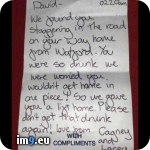 David- 02:20am
We found you
staggering in the road
on your way home
from Watford. You
were so drunk we
were worried you
wouldn't get home in
one piece! So we gave
you a lift home. Please
don't get that drunk
again! love from
Cagney
and
WITH
COMPLIMENTS
img9.me